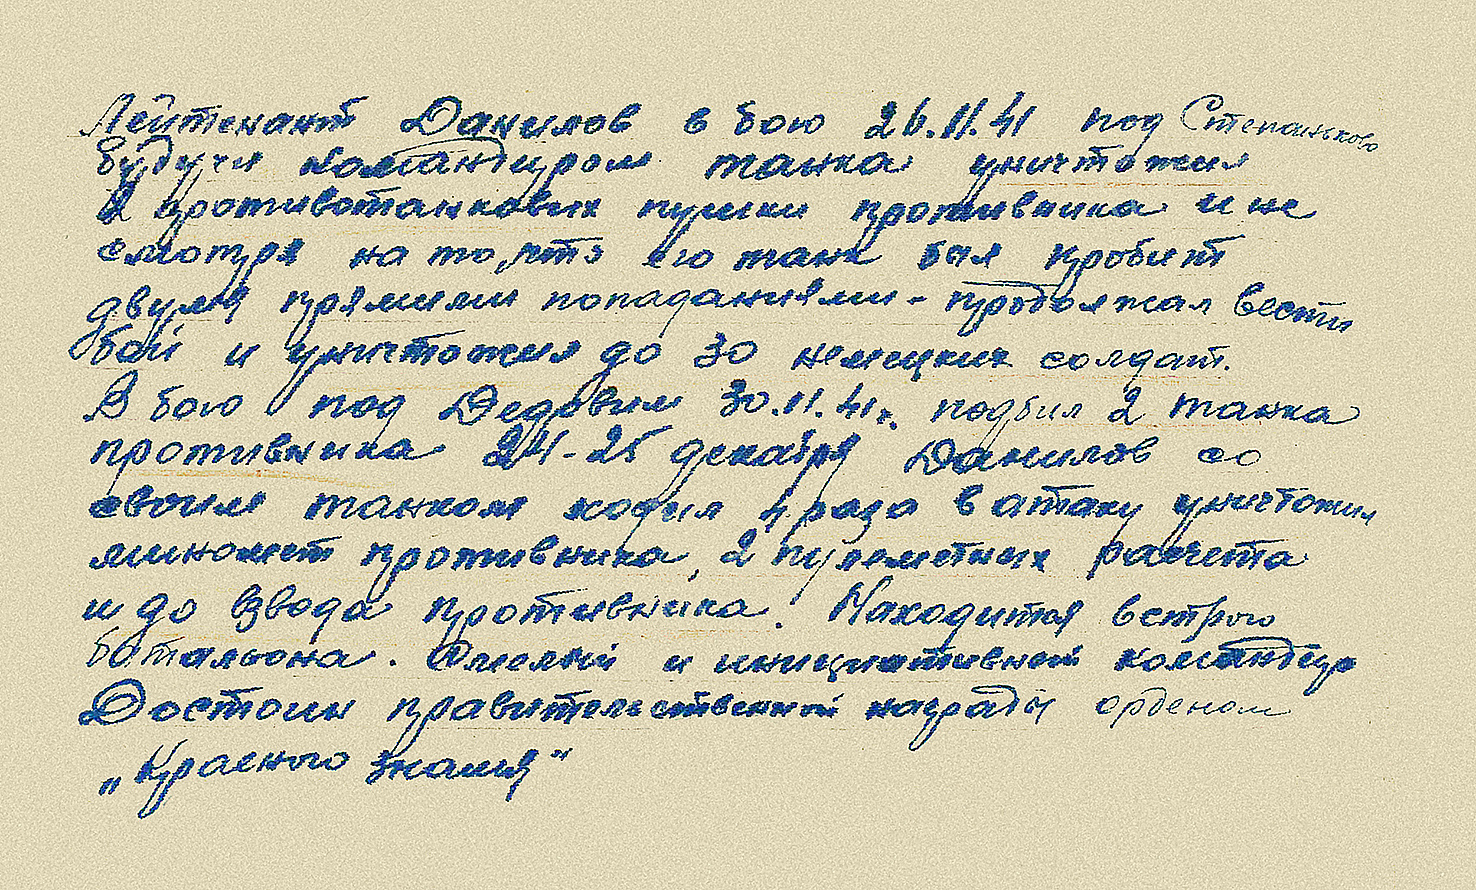 Лейтенант Данилов в бою 26.11.41 под Степаньково
будучи командиром танка уничтожил
2 противотанковых пушки противника и не
смотря на то, что его танк был пробит
двумя прямыми попаданиями - продолжал вести
бой и уничтожил до 30 немецких солдат.
В бою под Дедовым 30.11.41г. подбил 2 танка
противника 24-25 декабря Данилов со
своим танком ходил 4 раза в атаку уничтожил
миномет противника, 2 пулеметных расчета
и до взвода противника. Находится в строю
батальона. Смелый и инициативный командир
Достоин правительственной награды орденом
„Красного знамя“